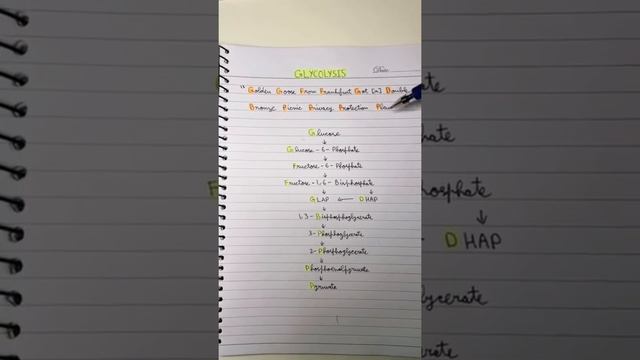 GLYCOLYSIS
Date
"Golden Goose From Frankfurt Got [a] Double
Bronze Picnic Privacy Protection
Glucose
Glucose-6-Phosphate
Fructose-6-Phosphate
Fructose-1,6-Bisphosphate
GLAP ← DHAP
1,3-Bisphosphoglycerate
3-Phosphoglycerate
2-Phosphoglycerate
Phosphoenolpyruvate
Pyruvate
sphate
DHAP
lycerate